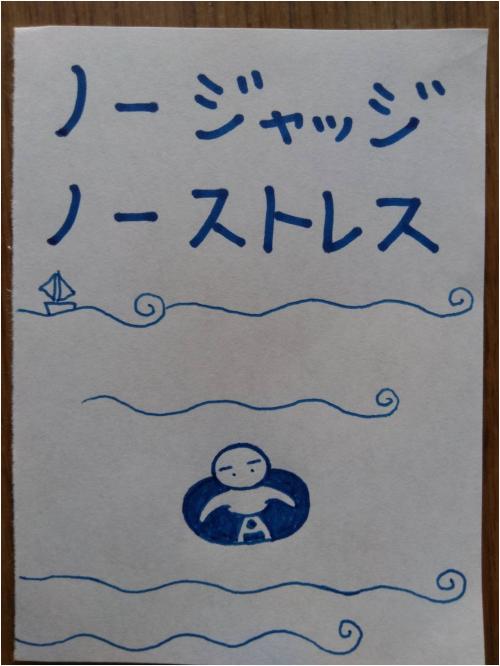 ノージャッジ
ノーストレス